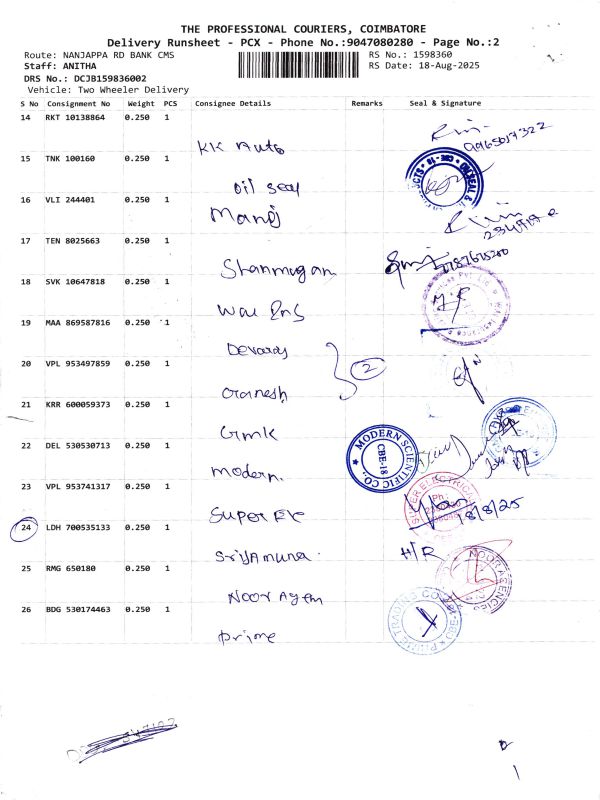 THE PROFESSIONAL COURIERS, COIMBATORE
Delivery Runsheet - PCX - Phone No.:9047080280 - Page No.:2
Route: NANJAPPA RD BANK CMS RS No.: 1598360
Staff: ANITHA RS Date: 18-Aug-2025
DRS No.: DCJB159836002
Vehicle: Two Wheeler Delivery
S No Consignment No Weight PCS Consignee Details Remarks Seal & Signature
14 RKT 10138864 0.250 1
KK Auto
15 TNK 100160 0.250 1
oil seal
16 VLI 244401 0.250 1
Manoj
17 TEN 8025663 0.250 1
Shanmugam
18 SVK 10647818 0.250 1
19 MAA 869587816 0.250 1
Devaraj
2
20 VPL 953497859 0.250 1
Ganesh
21 KRR 600059373 0.250 1
GMK
22 DEL 530530713 0.250 1
modern.
MODERN SCIENTIFIC CO.
CBE-18
23 VPL 953741317 0.250 1
SUPER Ele
SUPER ELECTRICAL
18/8/25
24 LDH 700535133 0.250 1
Sri Jamuna
H/R
25 RMG 650180 0.250 1
Noor Agen
NOOR AGENCIES
26 BDG 530174463 0.250 1
prime
PRIME TRADING CO